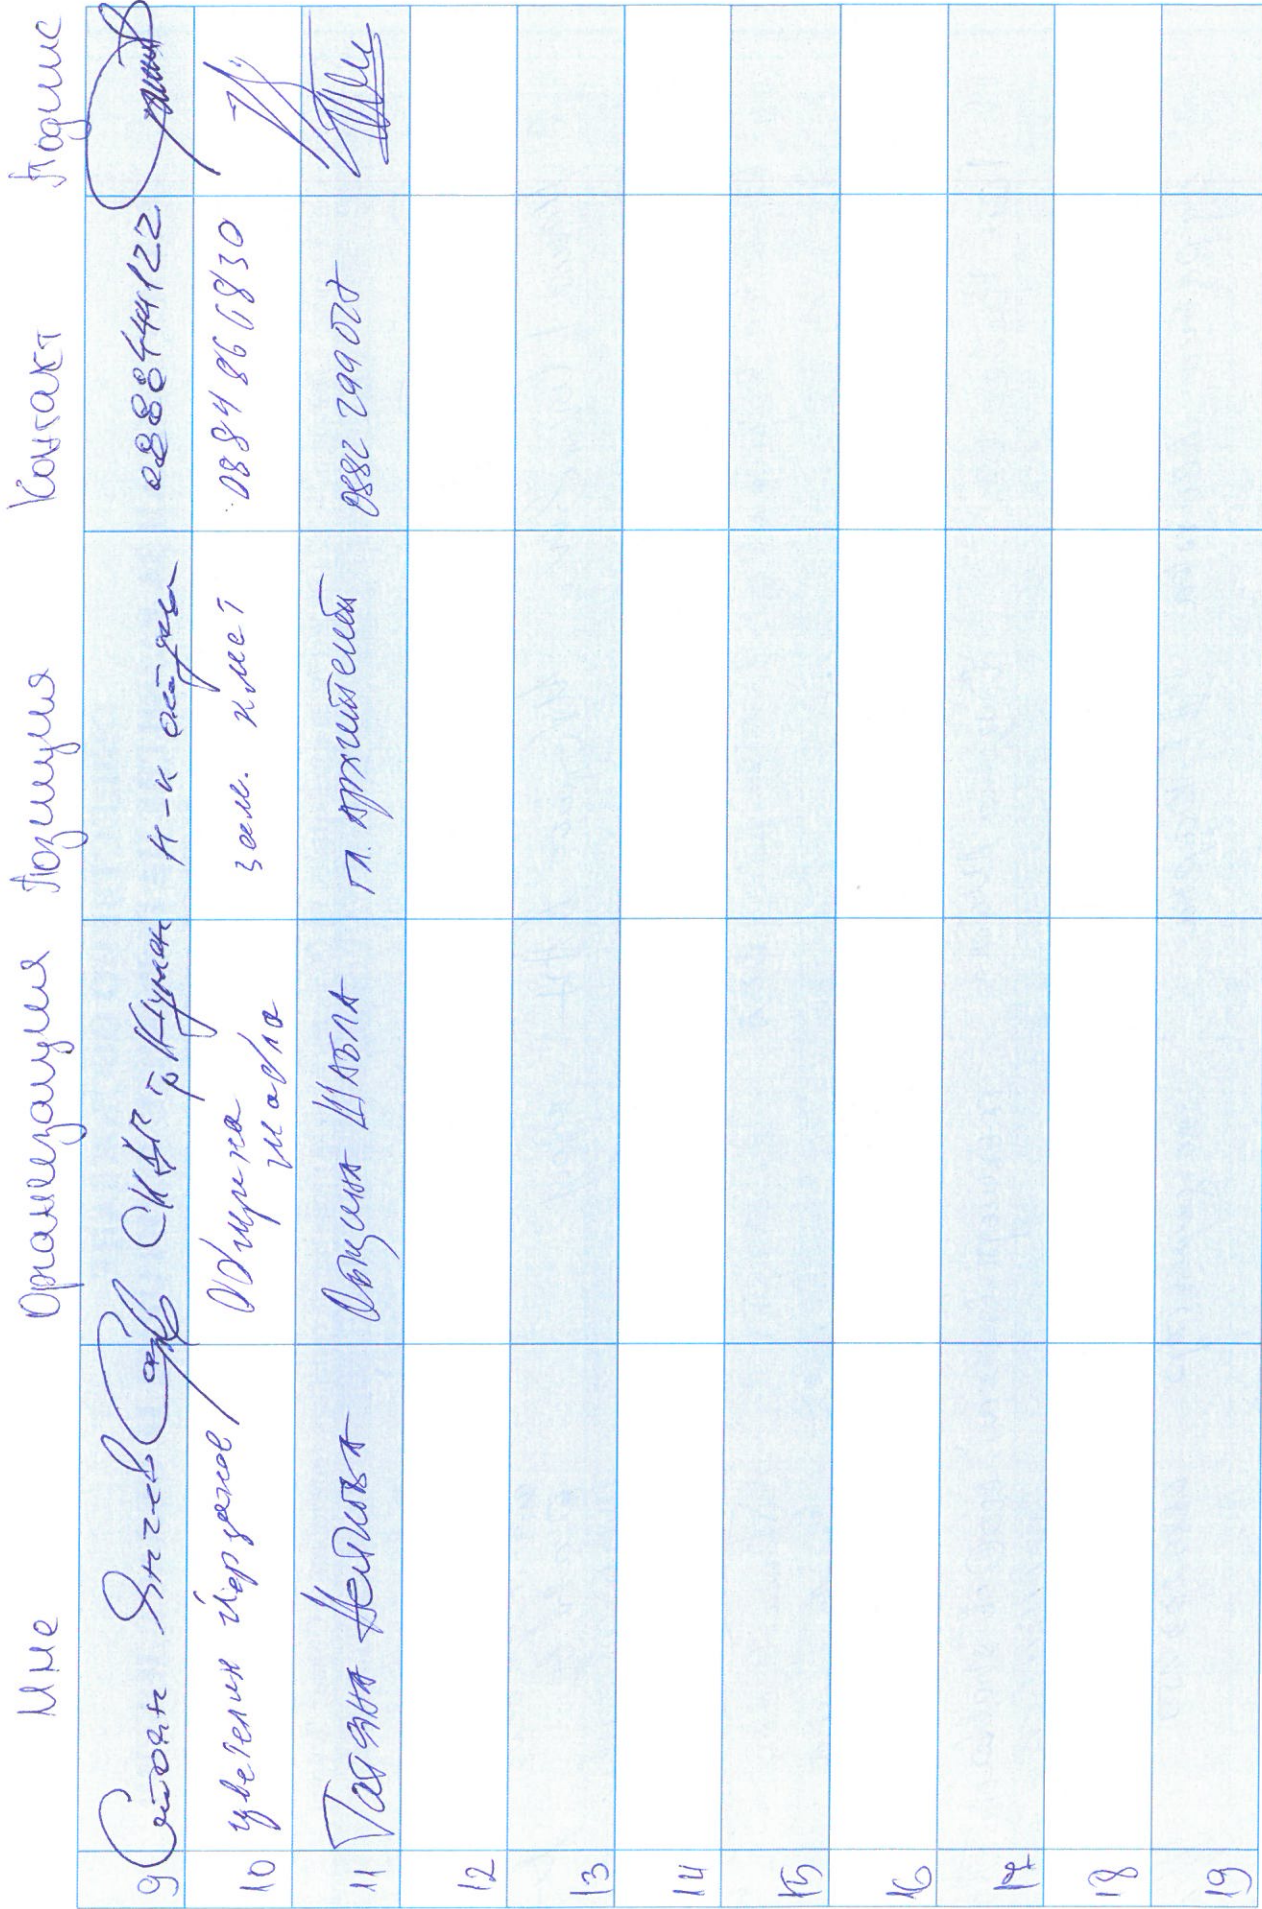 Име Организация Позиция Контакт Подпис
9 Стоян Янчев СИДП гр. Шумен н-к отдел 088844122
10 Цветелин Йорданов Община Шабла зам. кмет 0884866830
11 Татяна Община ШАБЛА гл. архитект 0882299077
12
13
14
15
16
17
18
19